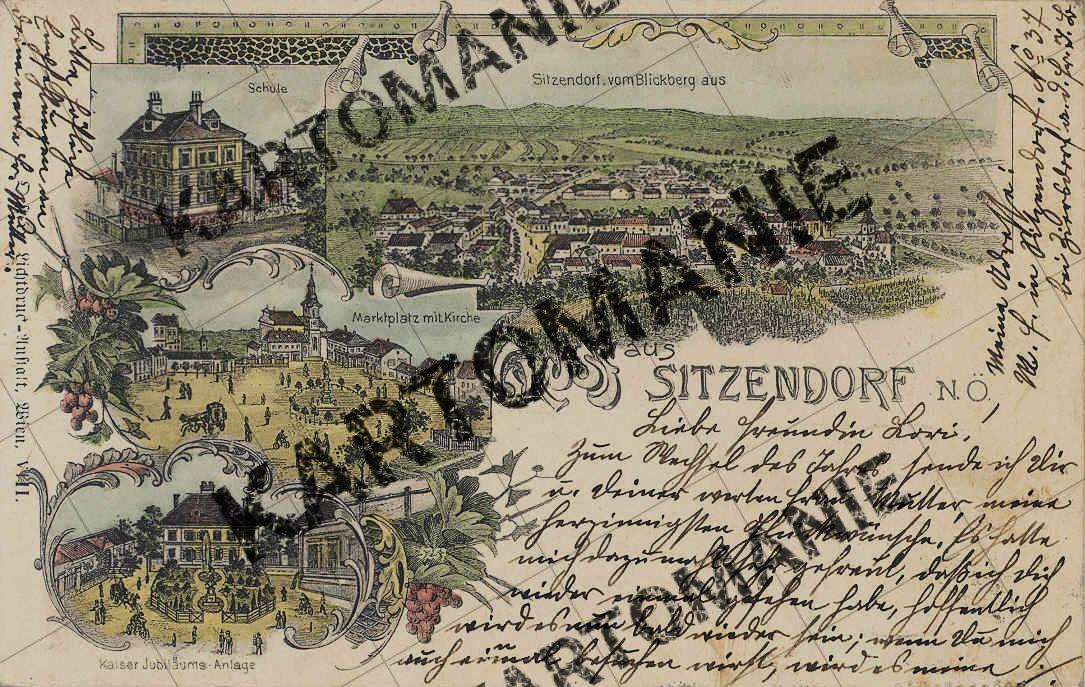 Schule
Sitzendorf. vom Blickberg aus
Marktplatz mit Kirche
Gruss aus
SITZENDORF N.Ö.
Kaiser Jubiläums-Anlage
5253
Lichtdruck-Anstalt, Wien, VII.
Liebe Freundin Lori!
Zum Wechsel des Jahres sende ich Dir
u. Deiner werten Frau Mutter meine
herzinnigsten Glückwünsche. Es hatte
mich dazumahl sehr gefreut, daß ich Dich
wieder einmal gesehen habe, hoffentlich
wird es nun bald wieder sein; wenn Du mich
auch einmal besuchen wirst, wird es meine
Meine Adresse:
M. H. in Sitzendorf, No 37
KARTOMANIE
KARTOMANIE
KARTOMANIE
KARTOMANIE